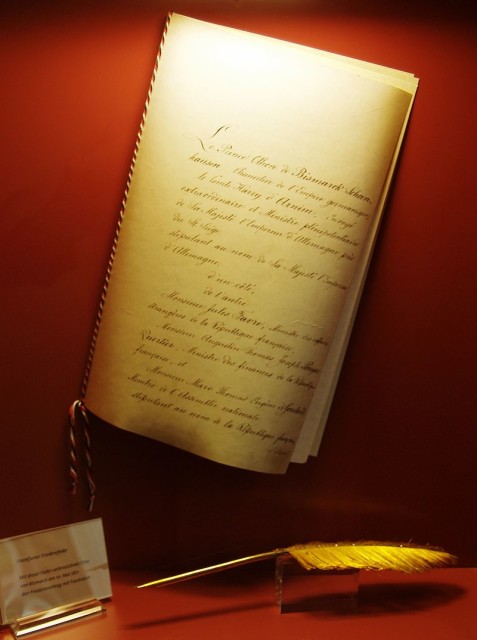 Le Prince Othon de Bismarck-Schön-
hausen, Chancelier de l'Empire germanique,
le Comte Harry d'Arnim, Envoyé
extraordinaire et Ministre plénipotentiaire
de Sa Majesté l'Empereur d'Allemagne près
du St. Siège,
stipulant au nom de Sa Majesté l'Empereur
d'Allemagne,
d'un côté,
de l'autre
Monsieur Jules Favre, Ministre des affaires
étrangères de la République française
Monsieur Augustin Thomas Joseph Pouyer-
Quertier, Ministre des finances de la République
française, et
Monsieur Marc Thomas Eugène de Goulard,
Membre de l'Assemblée nationale
stipulant au nom de la République française
Frankfurter Friedensfeder
Mit dieser Feder unterzeichnete Fürst
von Bismarck am 10. Mai 1871
den Friedensvertrag mit Frankreich